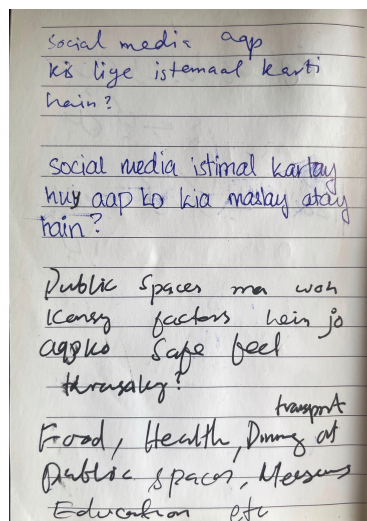 social media aap
kis liye istemaal karti
hain?
social media istimal kartay
huy aap ko kia maslay atay
hain?
Public Spaces ma woh
kensy factors hein jo
aapko Safe feel
transport
Food, Health, Dining at
Public spaces,
Education etc